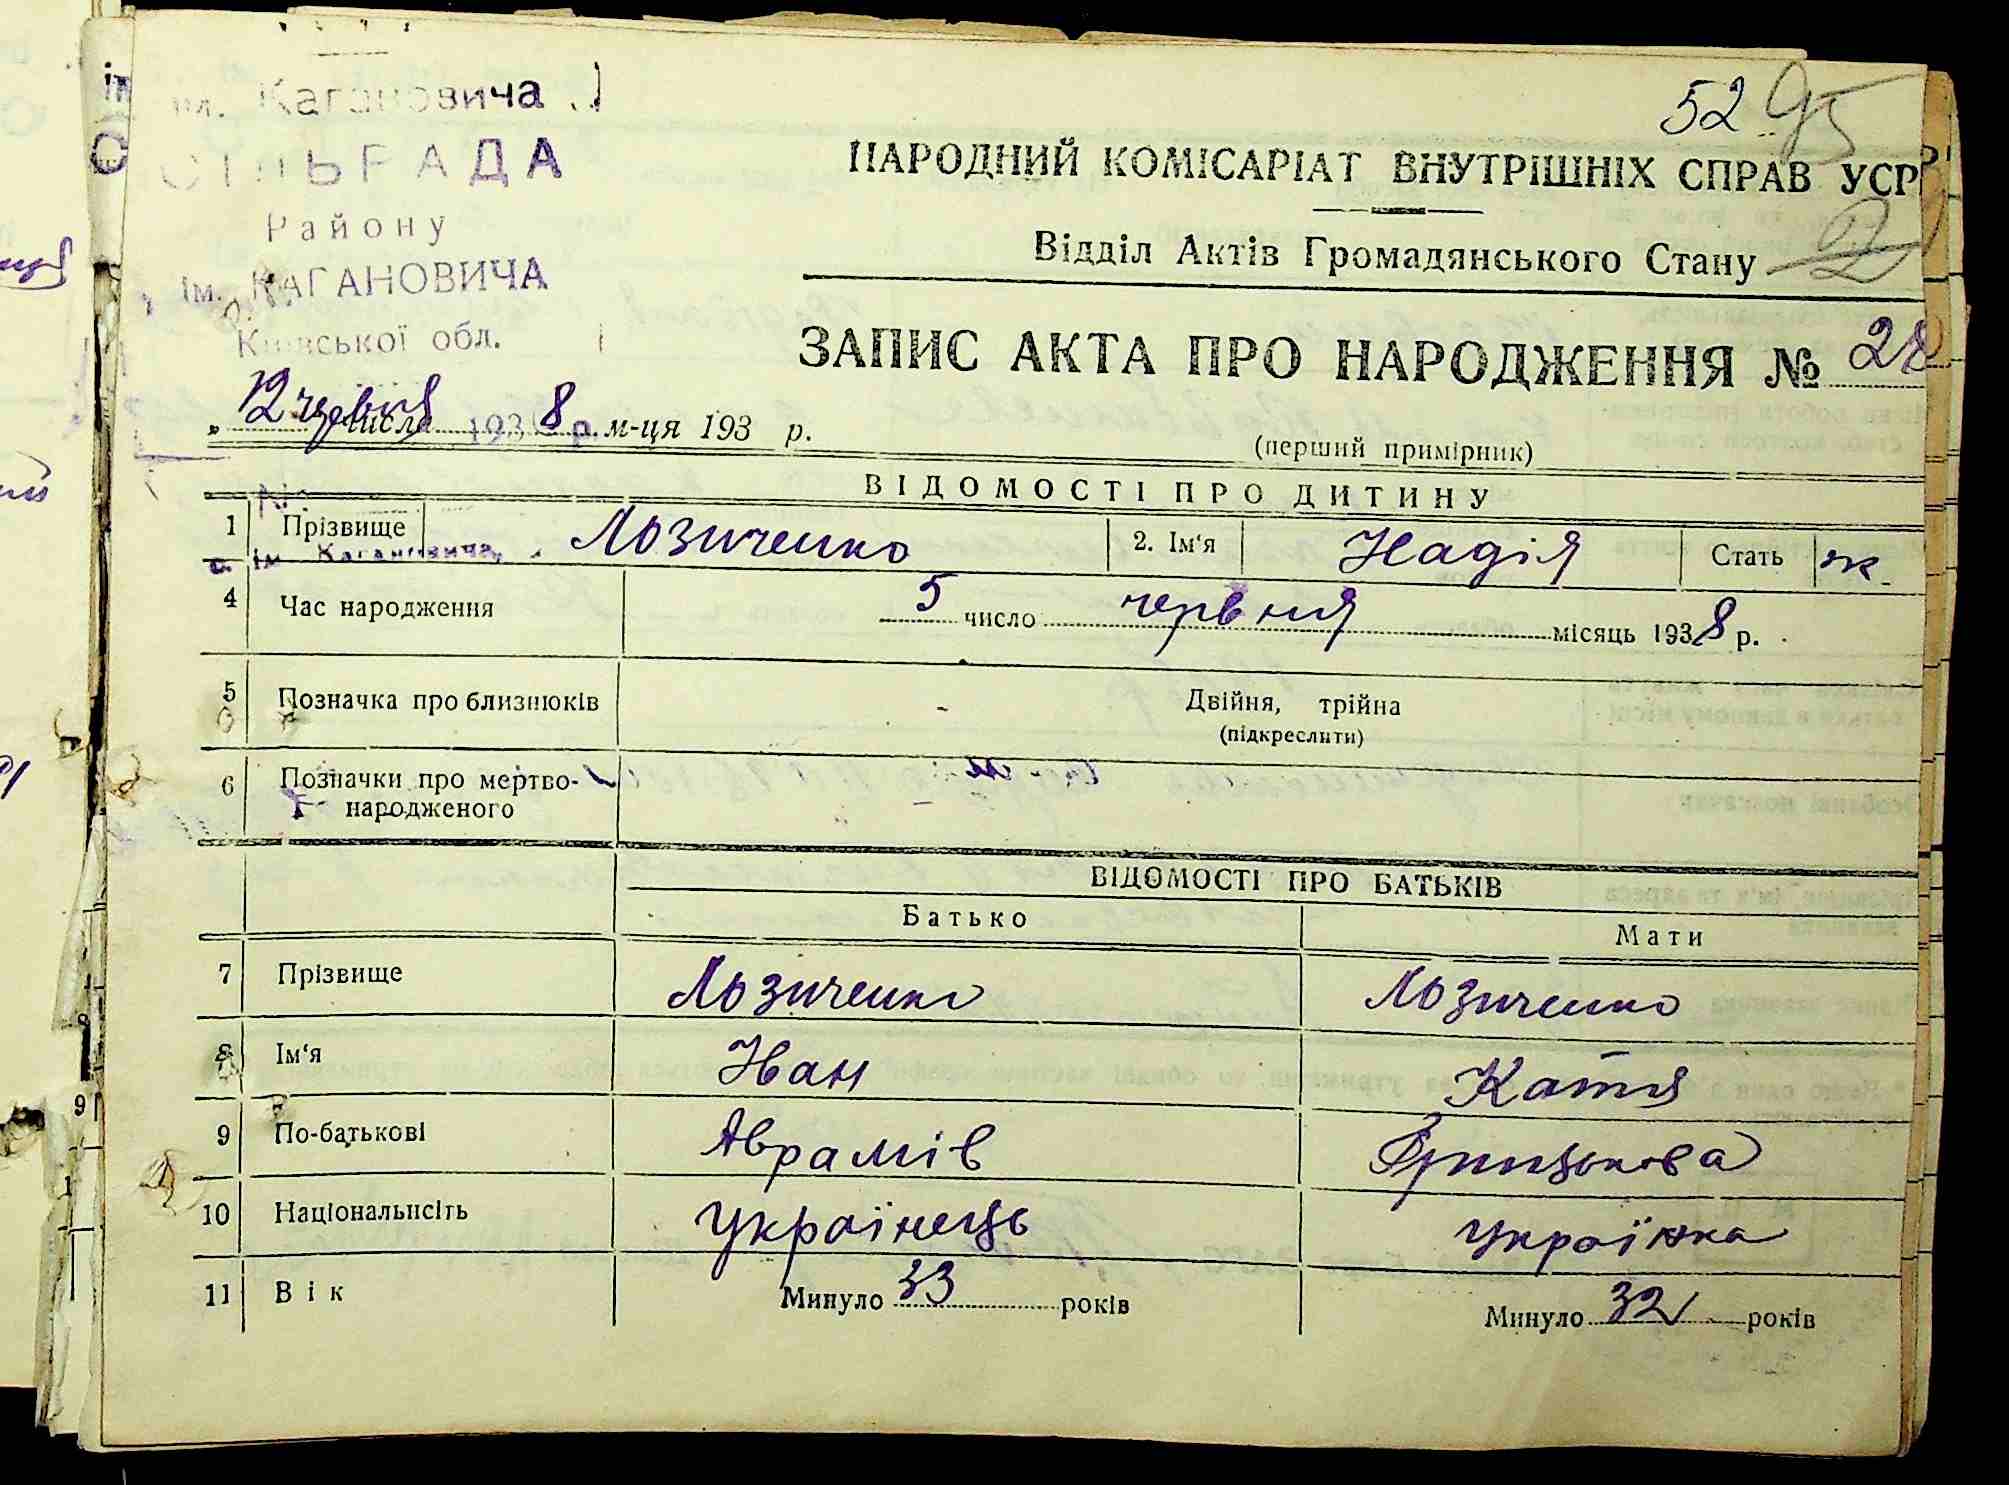 52 95
ім. Кагановича
СІЛЬРАДА
Району
ім. КАГАНОВИЧА
Київської обл.
НАРОДНИЙ КОМІСАРІАТ ВНУТРІШНІХ СПРАВ УСРР
Відділ Актів Громадянського Стану
ЗАПИС АКТА ПРО НАРОДЖЕННЯ № 28
„ 12 червня числа 1938 р. м-ця 193 р.
(перший примірник)
ВІДОМОСТІ ПРО ДИТИНУ
1 Прізвище Лозиченко 2. Ім‘я Надія Стать ж.
с. ім Кагановича,
4 Час народження 5 число червня місяць 1938 р.
5 Позначка про близнюків - Двійня, трійна
(підкреслити)
6 Позначки про мертво-
народженого
ВІДОМОСТІ ПРО БАТЬКІВ
Батько Мати
7 Прізвище Лозиченко Лозиченко
8 Ім‘я Іван Катя
9 По-батькові Аврамів Грицькова
10 Національність Українець Українка
11 Вік Минуло 33 років Минуло 32 років